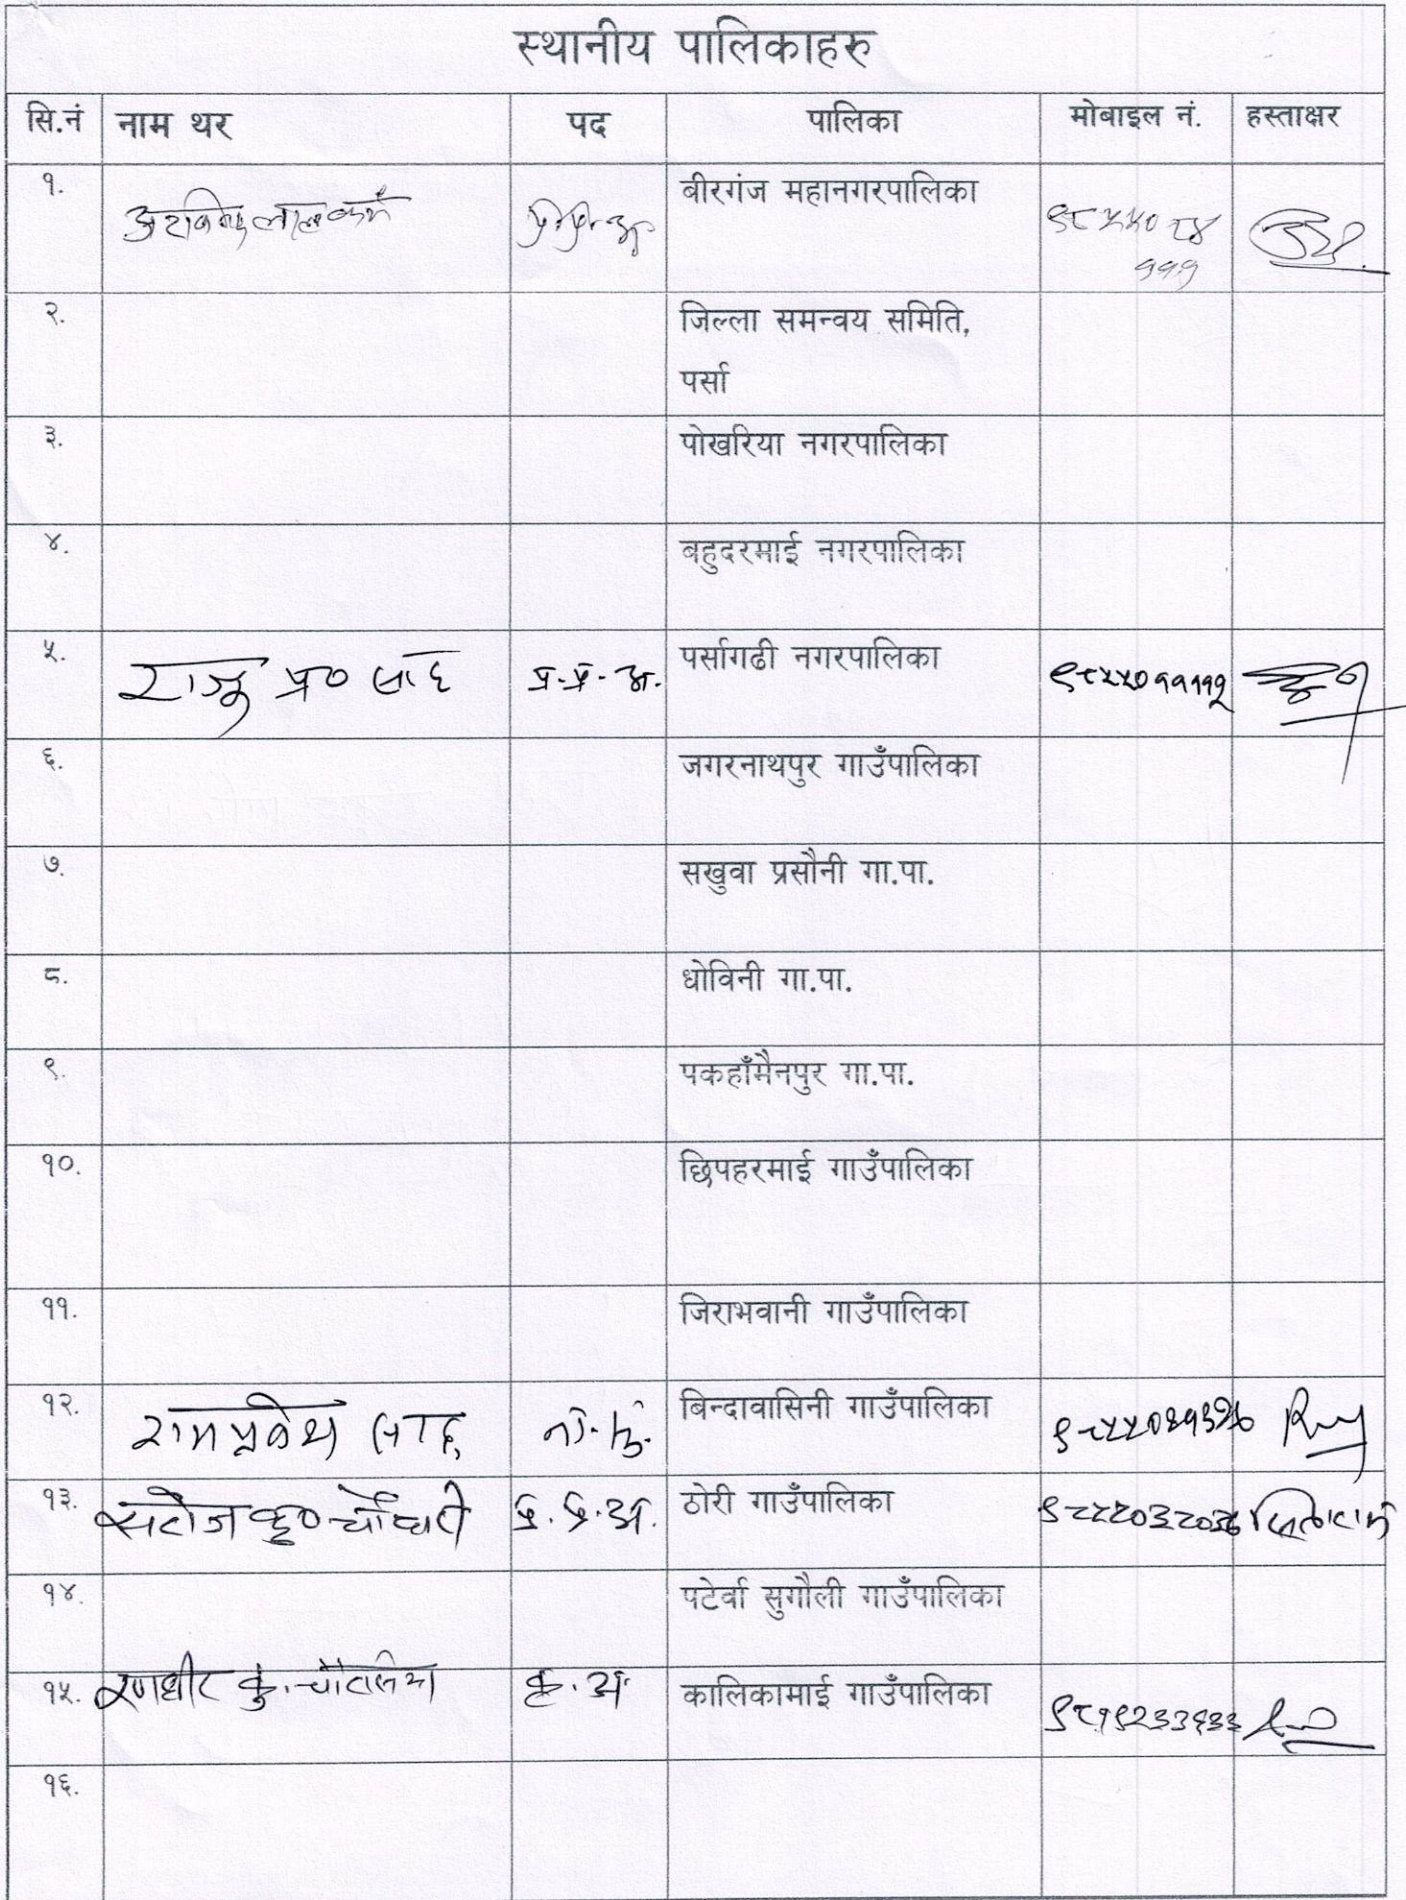 स्थानीय पालिकाहरु
सि.नं नाम थर पद पालिका मोबाइल नं. हस्ताक्षर
१. बीरगंज महानगरपालिका
२. जिल्ला समन्वय समिति,
पर्सा
३. पोखरिया नगरपालिका
४. बहुदरमाई नगरपालिका
५. राजु प्र० साह प्र.प्र.अ. पर्सागढी नगरपालिका ९८५५०११११२
६. जगरनाथपुर गाउँपालिका
७. सखुवा प्रसौनी गा.पा.
८. धोविनी गा.पा.
९. पकहाँमैनपुर गा.पा.
१०. छिपहरमाई गाउँपालिका
११. जिराभवानी गाउँपालिका
१२. रामप्रवेश साह बिन्दावासिनी गाउँपालिका
१३. सरोज कु० चौधरी प्र.प्र.अ. ठोरी गाउँपालिका
१४. पटेर्वा सुगौली गाउँपालिका
१५. रणधीर कु. चौरसिया कालिकामाई गाउँपालिका
१६.